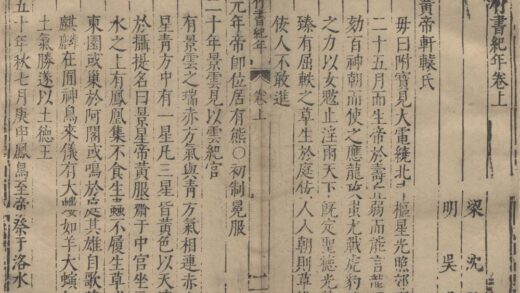 竹書紀年卷上
梁 沈
明 吳
黃帝軒轅氏
母曰附寶見大電繞北 樞星光照郊
二十五月而生帝於壽 弱而能言龍
劾百神朝而使之應龍攻蚩尤戰虎豹
之力以女魃止淫雨天下既定聖德光
臻有屈軼之草生於庭佞人入朝則草
佞人不敢進
竹書紀年 卷上 一
元年帝即位居有熊○初制冕服
二十年景雲見以雲紀官
有景雲之瑞赤方氣與青方氣相連赤
星青方中有一星凡三星皆黃色以天
於攝提名曰景星帝黃服齋于中宮坐
水之上有鳳凰集不食生蟲不履生草
東園或巢於阿閣或鳴於庭其雄自歌
麒麟在囿神鳥來儀有大螻如羊大螾
土氣勝遂以土德王
五十年秋七月庚申鳳鳥至帝祭于洛水